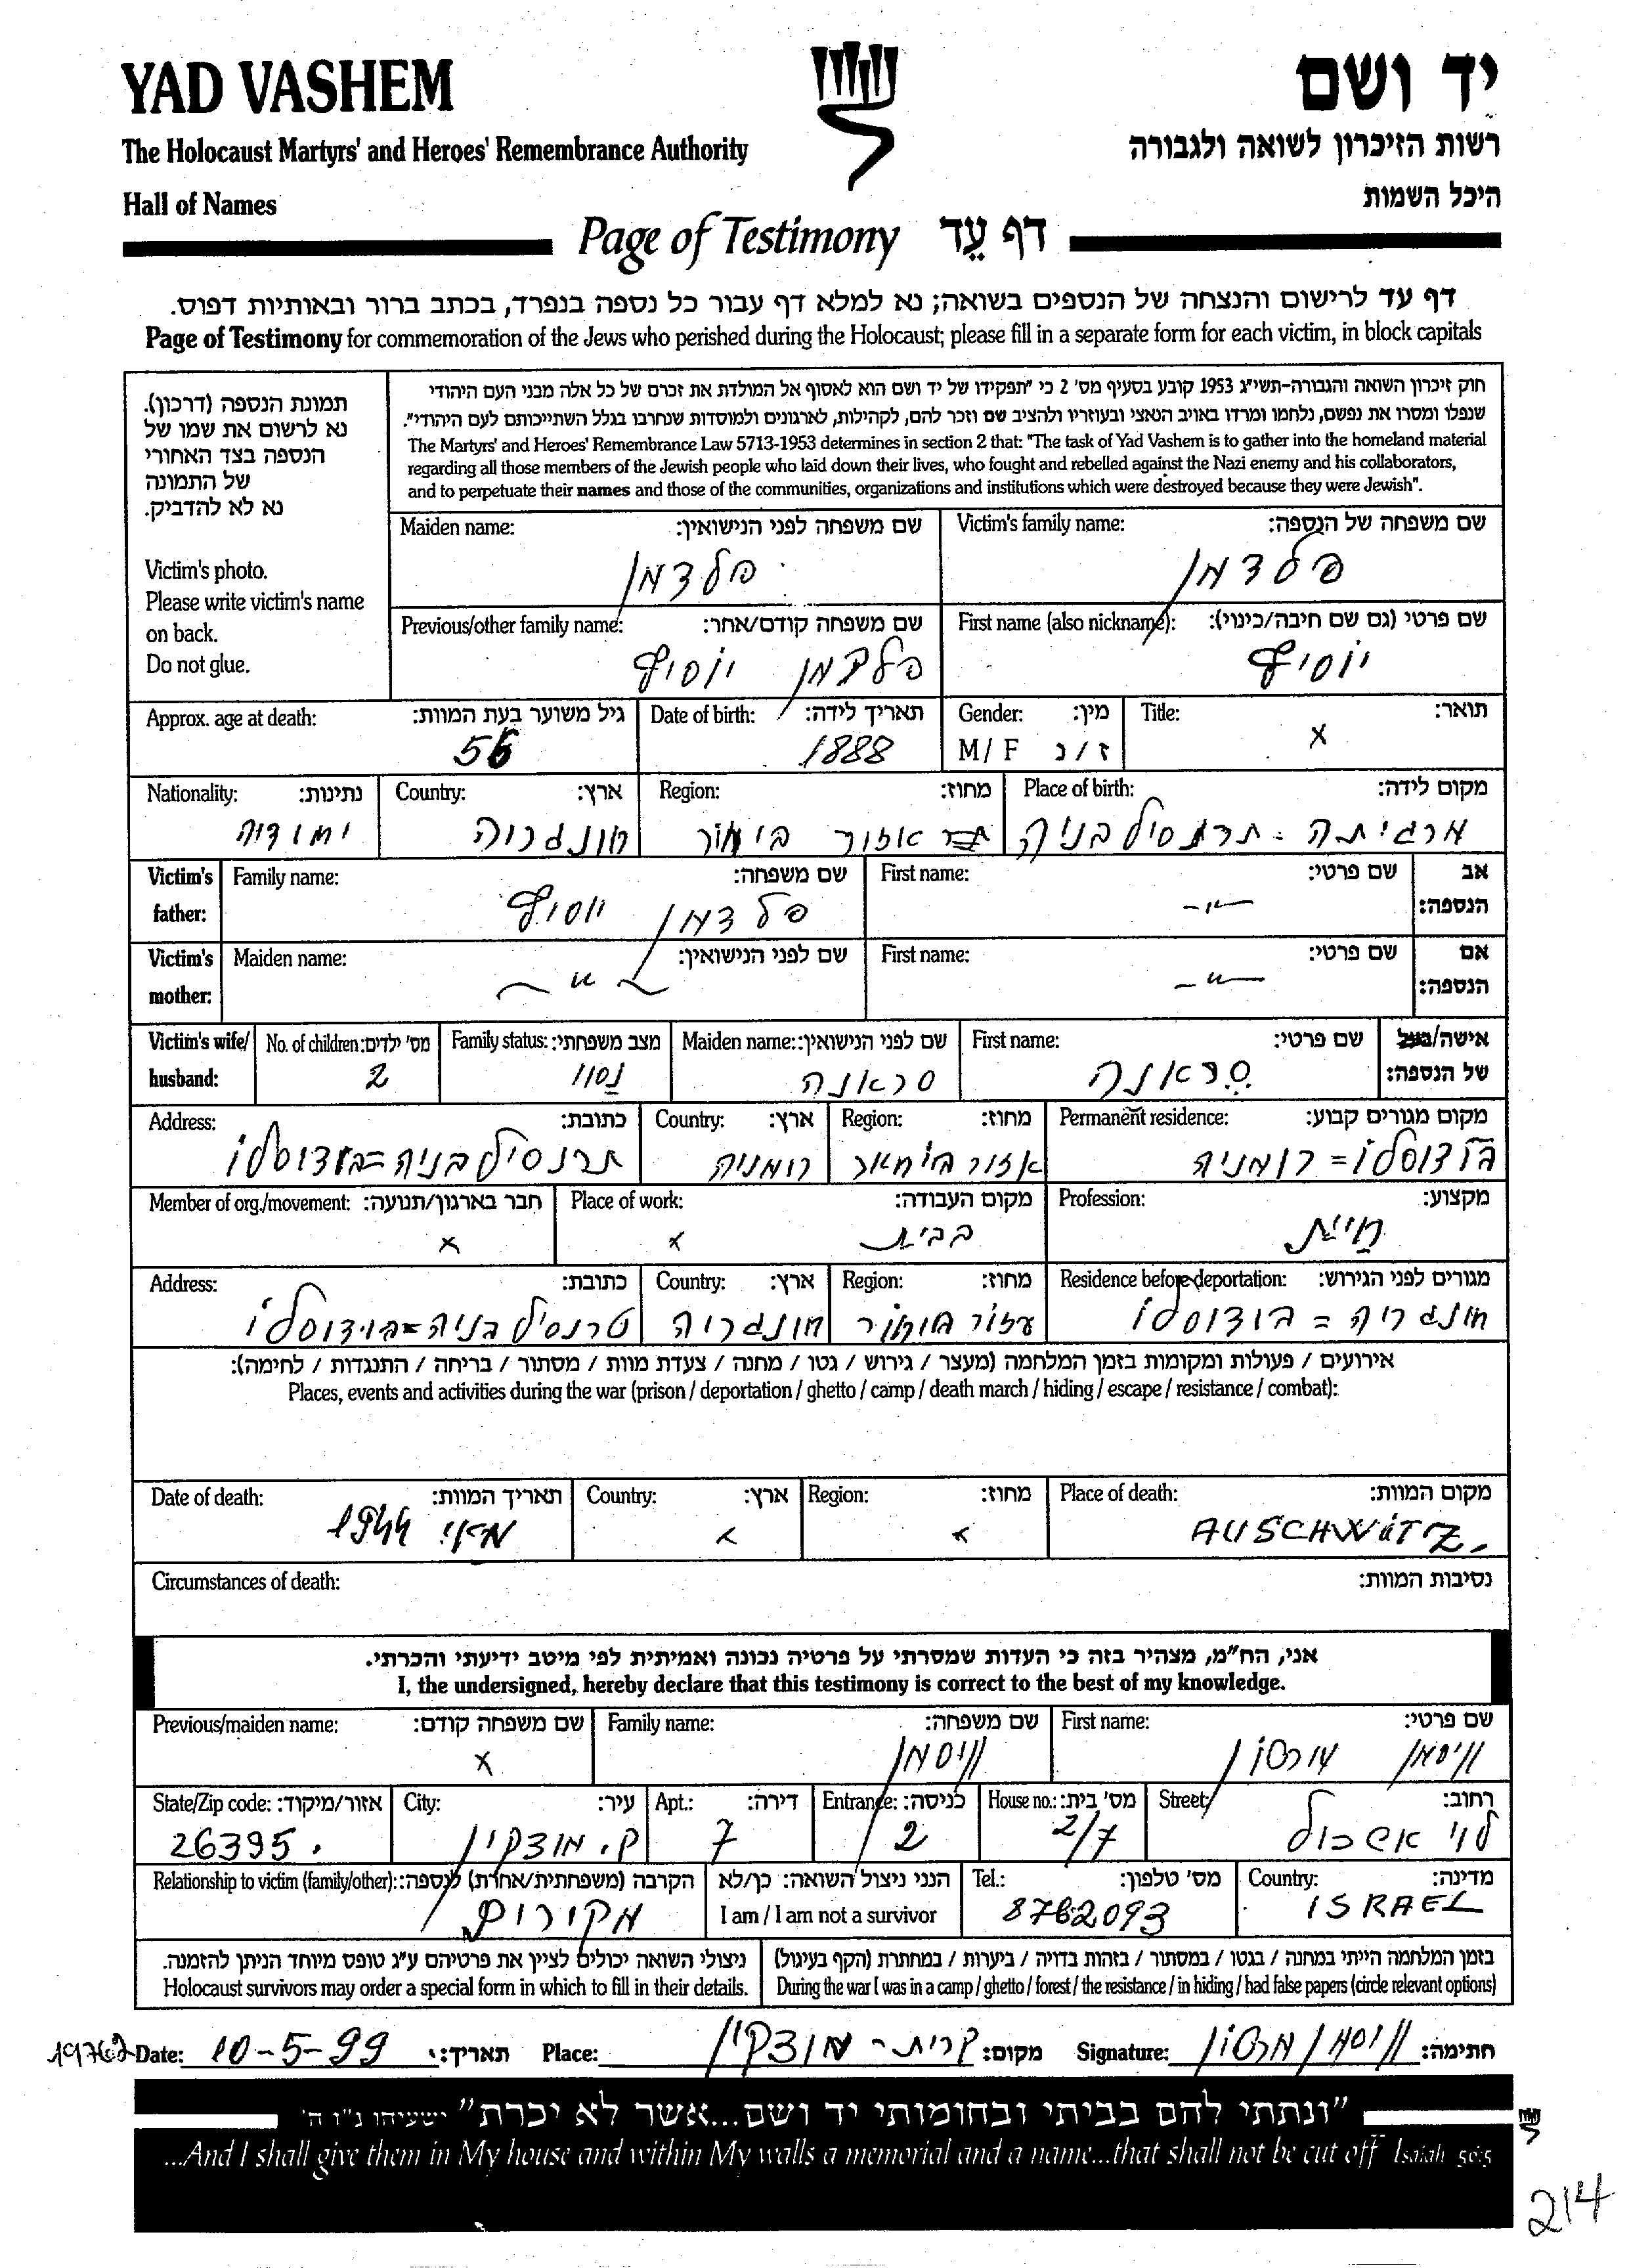 YAD VASHEM
יד ושם
The Holocaust Martyrs' and Heroes' Remembrance Authority
רשות הזיכרון לשואה ולגבורה
Hall of Names
היכל השמות
Page of Testimony דף עֵד
דף עד לרישום והנצחה של הנספים בשואה; נא למלא דף עבור כל נספה בנפרד, בכתב ברור ובאותיות דפוס.
Page of Testimony for commemoration of the Jews who perished during the Holocaust; please fill in a separate form for each victim, in block capitals
תמונת הנספה (דרכון).
נא לרשום את שמו של
הנספה בצד האחורי
של התמונה
נא לא להדביק.
Victim's photo.
Please write victim's name
on back.
Do not glue.
חוק זיכרון השואה והגבורה-תשי"ג 1953 קובע בסעיף מס' 2 כי "תפקידו של יד ושם הוא לאסוף אל המולדת את זכרם של כל אלה מבני העם היהודי
שנפלו ומסרו את נפשם, נלחמו ומרדו באויב הנאצי ובעוזריו ולהציב שם וזכר להם, לקהילות, לארגונים ולמוסדות שנחרבו בגלל השתייכותם לעם היהודי".
The Martyrs' and Heroes' Remembrance Law 5713-1953 determines in section 2 that: "The task of Yad Vashem is to gather into the homeland material
regarding all those members of the Jewish people who laid down their lives, who fought and rebelled against the Nazi enemy and his collaborators,
and to perpetuate their names and those of the communities, organizations and institutions which were destroyed because they were Jewish".
Victim's family name: שם משפחה של הנספה:
פלדמן
Maiden name: שם משפחה לפני הנישואין:
פלדמן
First name (also nickname): שם פרטי (גם שם חיבה/כינוי):
יוסיף
Previous/other family name: שם משפחה קודם/אחר:
פלדמן יוסיף
Title: תואר:
x
Gender: מין:
M / F ז / נ
Date of birth: תאריך לידה:
1888
Approx. age at death: גיל משוער בעת המוות:
56
Place of birth: מקום לידה:
מרגיתה - תרנסילבניה
Region: מחוז:
אזור ביהור
Country: ארץ:
הונגריה
Nationality: נתינות:
יהודיה
Victim's father: אב הנספה:
First name: שם פרטי:
-"-
Family name: שם משפחה:
פלדמן יוסיף
Victim's mother: אם הנספה:
First name: שם פרטי:
-"-
Maiden name: שם לפני הנישואין:
-"-
Victim's wife/ husband: אישה/בעל של הנספה:
First name: שם פרטי:
סראנה
Maiden name: שם לפני הנישואין:
סראנה
Family status: מצב משפחתי:
נסוי
No. of children: מס' ילדים:
2
Permanent residence: מקום מגורים קבוע:
בודוסלו = רומניה
Region: מחוז:
אזור ביהאר
Country: ארץ:
רומניה
Address: כתובת:
תרנסילבניה=בודוסלו
Profession: מקצוע:
חייט
Place of work: מקום העבודה:
בבית x
Member of org./movement: חבר בארגון/תנועה:
x
Residence before deportation: מגורים לפני הגירוש:
הונגריה = בודוסלו
Region: מחוז:
עזור ביהור
Country: ארץ:
הונגריה
Address: כתובת:
טרנסילבניה=בודוסלו
אירועים / פעולות ומקומות בזמן המלחמה (מעצר / גירוש / גטו / מחנה / צעדת מוות / מסתור / בריחה / התנגדות / לחימה):
Places, events and activities during the war (prison / deportation / ghetto / camp / death march / hiding / escape / resistance / combat):
Place of death: מקום המוות:
AUSCHWITZ
Region: מחוז:
x
Country: ארץ:
x
Date of death: תאריך המוות:
מאי 1944
Circumstances of death: נסיבות המוות:
אני, הח"מ, מצהיר בזה כי העדות שמסרתי על פרטיה נכונה ואמיתית לפי מיטב ידיעתי והכרתי.
I, the undersigned, hereby declare that this testimony is correct to the best of my knowledge.
First name: שם פרטי:
וויסמן
Family name: שם משפחה:
וויסמן
Previous/maiden name: שם משפחה קודם:
x
Street: רחוב:
לוי אשכול
House no.: מס' בית:
2/7
Entrance: כניסה:
2
Apt.: דירה:
7
City: עיר:
ק. מוצקין
State/Zip code: אזור/מיקוד:
26395
Country: מדינה:
ISRAEL
Tel.: מס' טלפון:
8762093
הנני ניצול השואה: כן/לא
I am / I am not a survivor
Relationship to victim (family/other): הקרבה (משפחתית/אחרת) לנספה:
מקורום
בזמן המלחמה הייתי במחנה / בגטו / במסתור / בזהות בדויה / ביערות / במחתרת (הקף בעיגול)
During the war I was in a camp / ghetto / forest / the resistance / in hiding / had false papers (circle relevant options)
ניצולי השואה יכולים לציין את פרטיהם ע"ג טופס מיוחד הניתן להזמנה.
Holocaust survivors may order a special form in which to fill in their details.
Date: 10-5-99 תאריך: Place: קרית-מוצקין מקום: Signature: וויסמן חתימה:
"ונתתי להם בביתי ובחומותי יד ושם...אשר לא יכרת" ישעיהו נ"ו ה'
...And I shall give them in My house and within My walls a memorial and a name...that shall not be cut off Isaiah 56:5
214